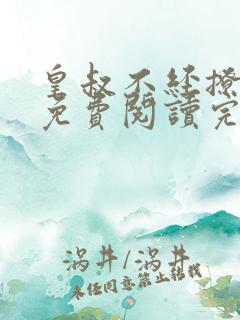 皇叔不经撩
免費閱讀完
涡井/涡井
未经同意禁止转载